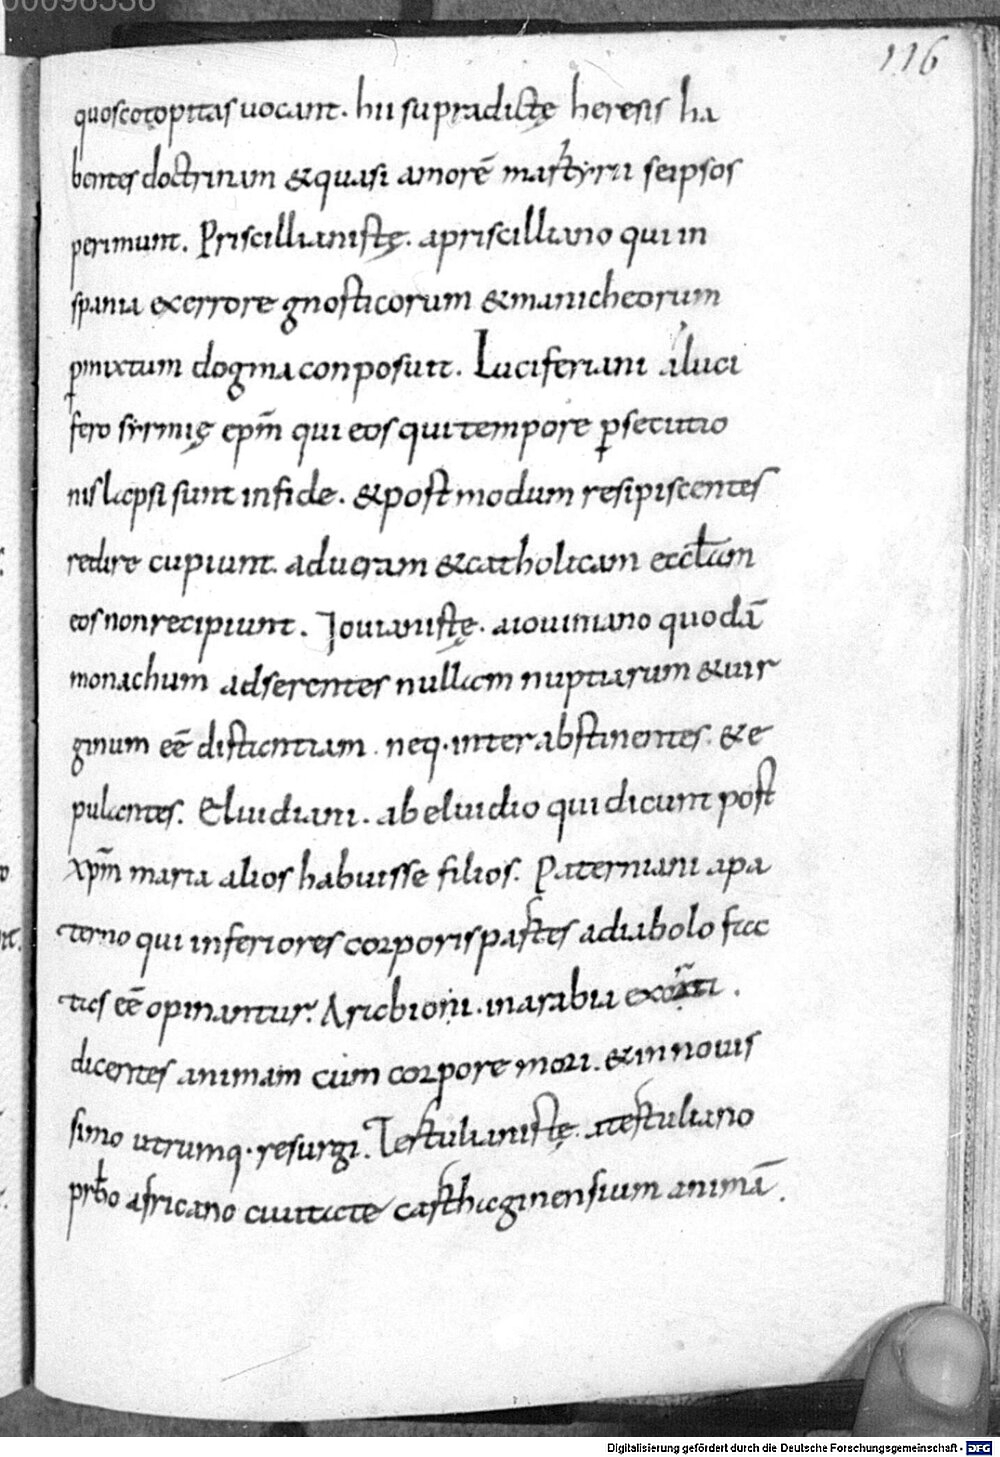 116
quoscotopitas uocant. hii supradictę heresis ha
bentes doctrinam &quasi amorē martyrii seipsos
perimunt. Priscillianistę. apriscilliano qui in
spania exerrore gnosticorum &manicheorum
ꝑmixtum dogma conposuit. Luciferiani aluci
fero syrmię epm̄ qui eos qui tempore ꝑsecutio
nis lapsi sunt infide. &post modum resipiscentes
redire cupiunt. adueram &catholicam ecclam̄
eos non recipiunt. Iouianistę. aiouiniano quodā
monachum adserentes nullam nuptiarum &uir
ginum eē distantiam. neq. inter abstinentes. &e
pulantes. Eluidiani. ab eluidio qui dicunt post
xpm̄ maria alios habuisse filios. Paterniani apa
terno qui inferiores corporis partes adiabolo fac
tas eē opinantur. Arabioni. inarabia
dicentes animam cum corpore mori. &in nouis
simo utrumq. resurgi. Tertulianistę. atertuliano
prbo africano ciuitate carthaginensium animā.
Digitalisierung gefördert durch die Deutsche Forschungsgemeinschaft - DFG